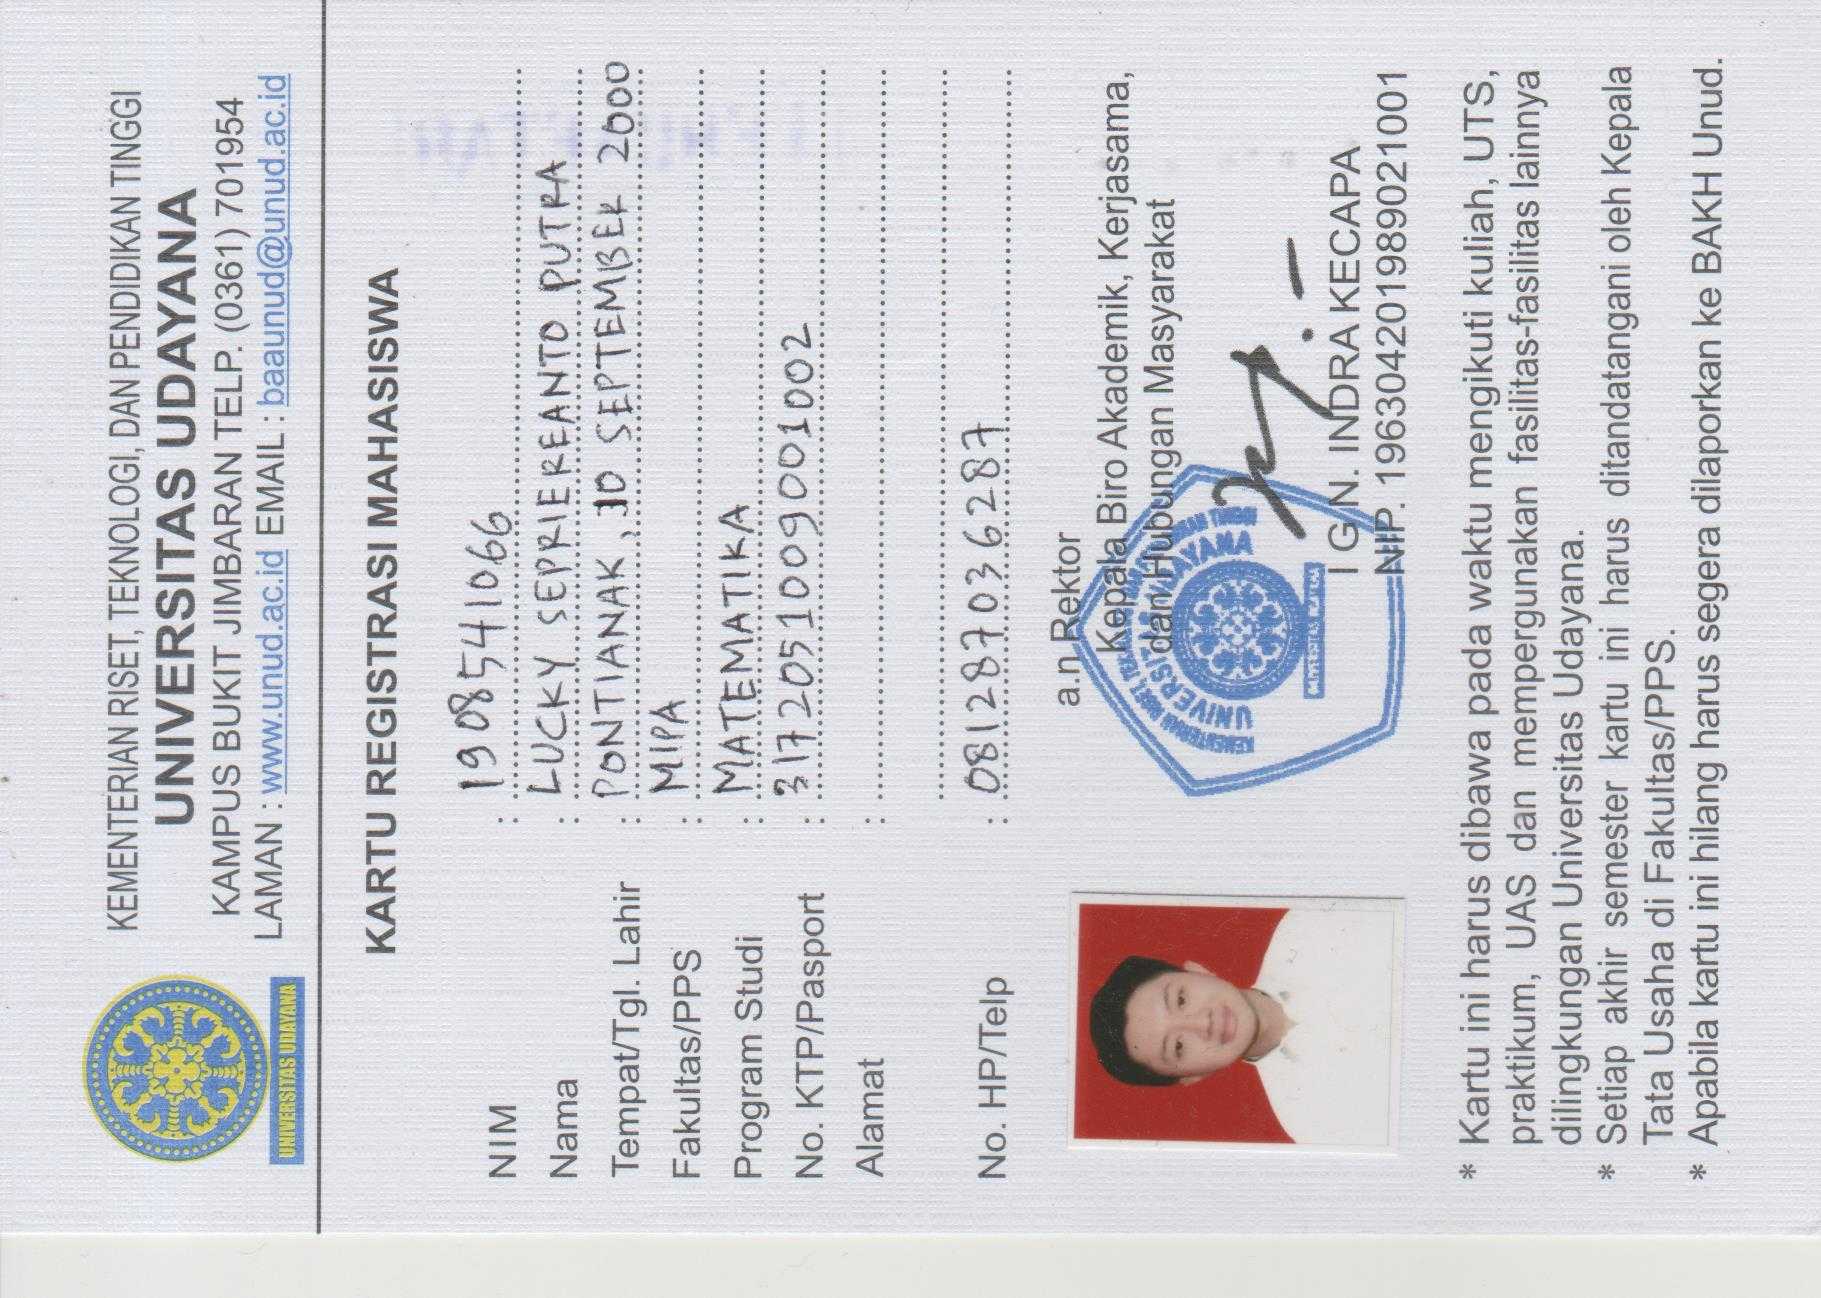 KEMENTERIAN RISET, TEKNOLOGI, DAN PENDIDIKAN TINGGI
UNIVERSITAS UDAYANA
KAMPUS BUKIT JIMBARAN TELP. (0361) 701954
LAMAN : www.unud.ac.id EMAIL : baaunud@unud.ac.id
UNIVERSITAS UDAYANA
KARTU REGISTRASI MAHASISWA
NIM : 1908541066
Nama : LUCKY SEPRIEREANTO PUTRA
Tempat/Tgl. Lahir : PONTIANAK, 10 SEPTEMBER 2000
Fakultas/PPS : MIPA
Program Studi : MATEMATIKA
No. KTP/Pasport : 3172051009001002
Alamat :
No. HP/Telp : 081287036287
a.n Rektor
Kepala Biro Akademik, Kerjasama,
dan Hubungan Masyarakat
UNIVERSITAS UDAYANA
I G.N. INDRA KECAPA
NIP. 196304201989021001
* Kartu ini harus dibawa pada waktu mengikuti kuliah, UTS,
praktikum, UAS dan mempergunakan fasilitas-fasilitas lainnya
dilingkungan Universitas Udayana.
* Setiap akhir semester kartu ini harus ditandatangani oleh Kepala
Tata Usaha di Fakultas/PPS.
* Apabila kartu ini hilang harus segera dilaporkan ke BAKH Unud.